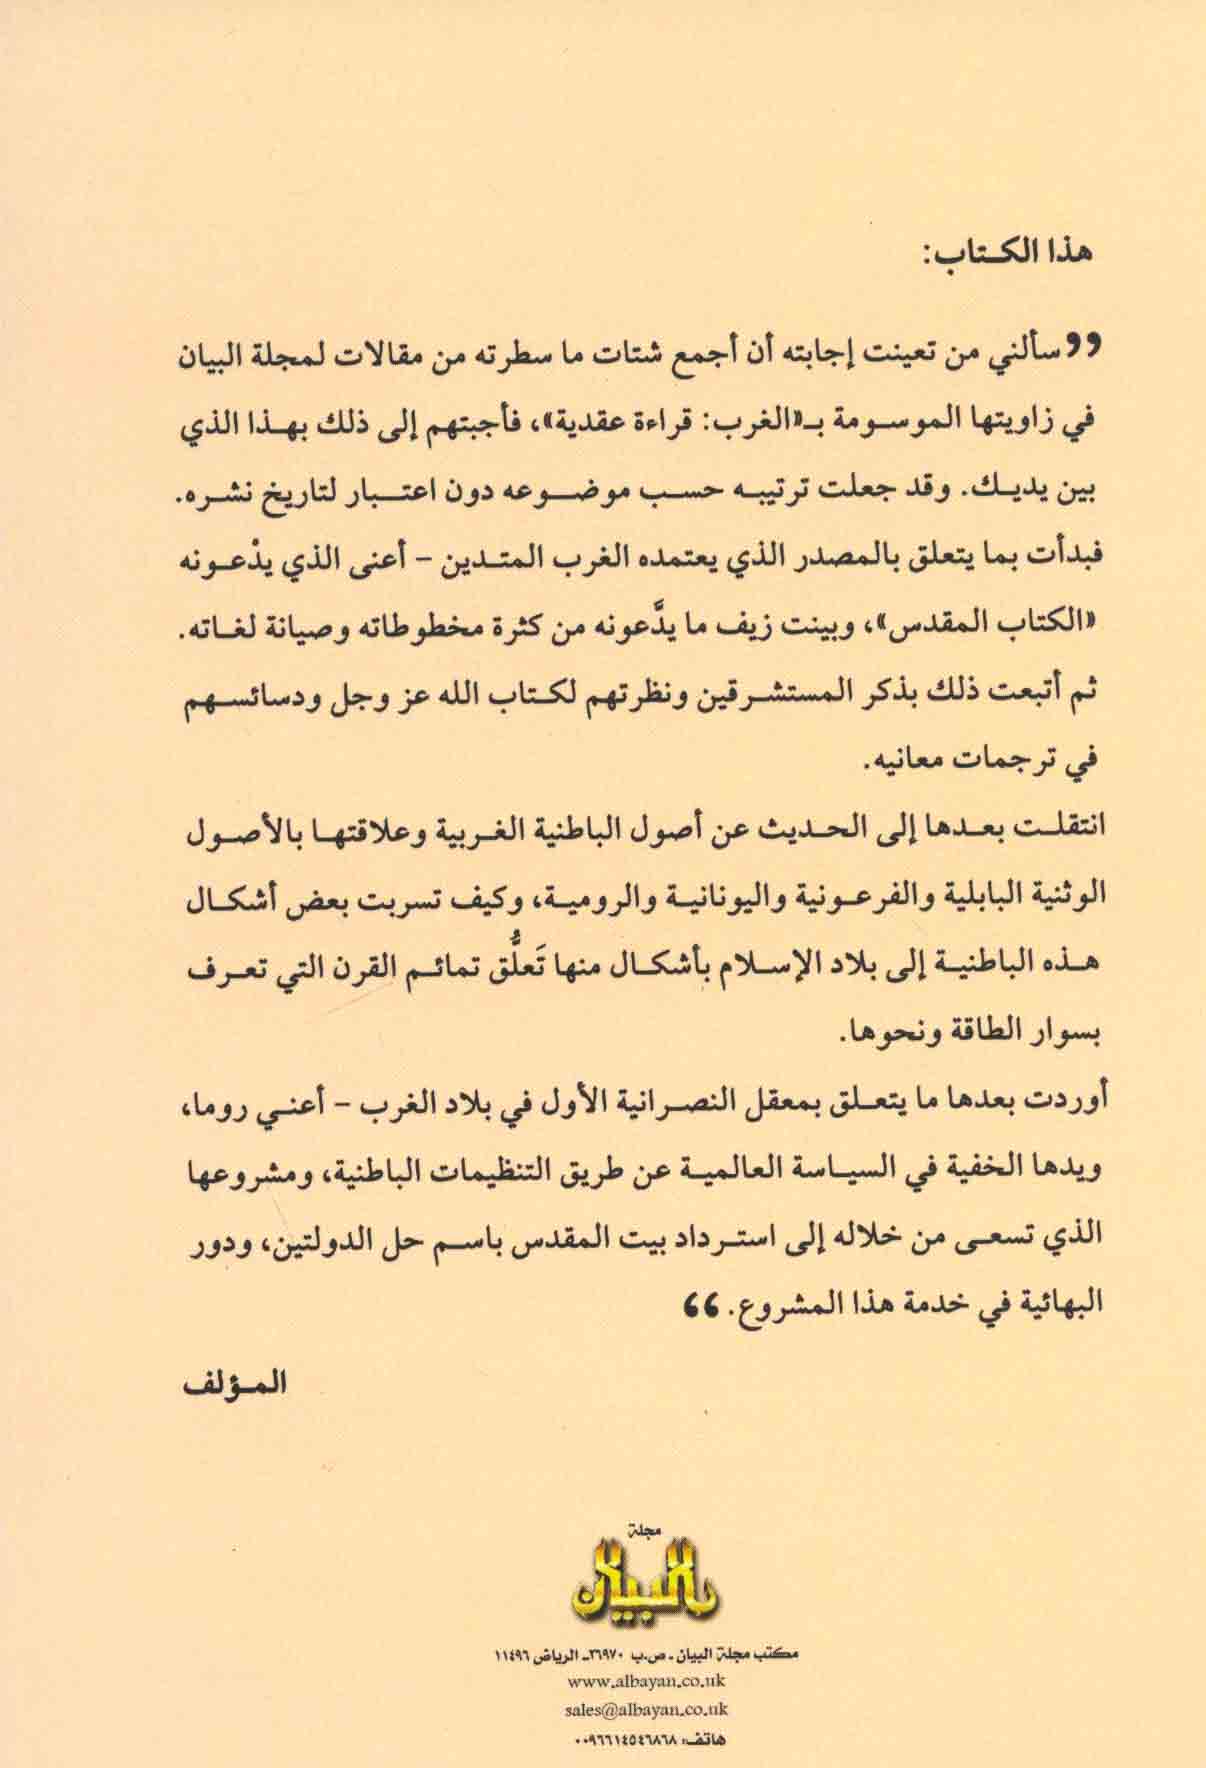 هذا الكتاب:
”سألني من تعينت إجابته أن أجمع شتات ما سطرته من مقالات لمجلة البيان
في زاويتها الموسومة بـ«الغرب: قراءة عقدية»، فأجبتهم إلى ذلك بهذا الذي
بين يديك. وقد جعلت ترتيبه حسب موضوعه دون اعتبار لتاريخ نشره.
فبدأت بما يتعلق بالمصدر الذي يعتمده الغرب المتدين – أعنى الذي يدْعونه
«الكتاب المقدس»، وبينت زيف ما يدَّعونه من كثرة مخطوطاته وصيانة لغاته.
ثم أتبعت ذلك بذكر المستشرقين ونظرتهم لكتاب الله عز وجل ودسائسهم
في ترجمات معانيه.
انتقلت بعدها إلى الحديث عن أصول الباطنية الغربية وعلاقتها بالأصول
الوثنية البابلية والفرعونية واليونانية والرومية، وكيف تسربت بعض أشكال
هذه الباطنية إلى بلاد الإسلام بأشكال منها تَعلُّق تمائم القرن التي تعرف
بسوار الطاقة ونحوها.
أوردت بعدها ما يتعلق بمعقل النصرانية الأول في بلاد الغرب – أعني روما،
ويدها الخفية في السياسة العالمية عن طريق التنظيمات الباطنية، ومشروعها
الذي تسعى من خلاله إلى استرداد بيت المقدس باسم حل الدولتين، ودور
البهائية في خدمة هذا المشروع.“
المؤلف
مجلة
البيان
مكتب مجلة البيان ـ ص.ب ٢٦٩٧٠ـ الرياض ١١٤٩٦
www.albayan.co.uk
sales@albayan.co.uk
هاتف: ٠٠٩٦٦١٤٥٤٦٨٦٨